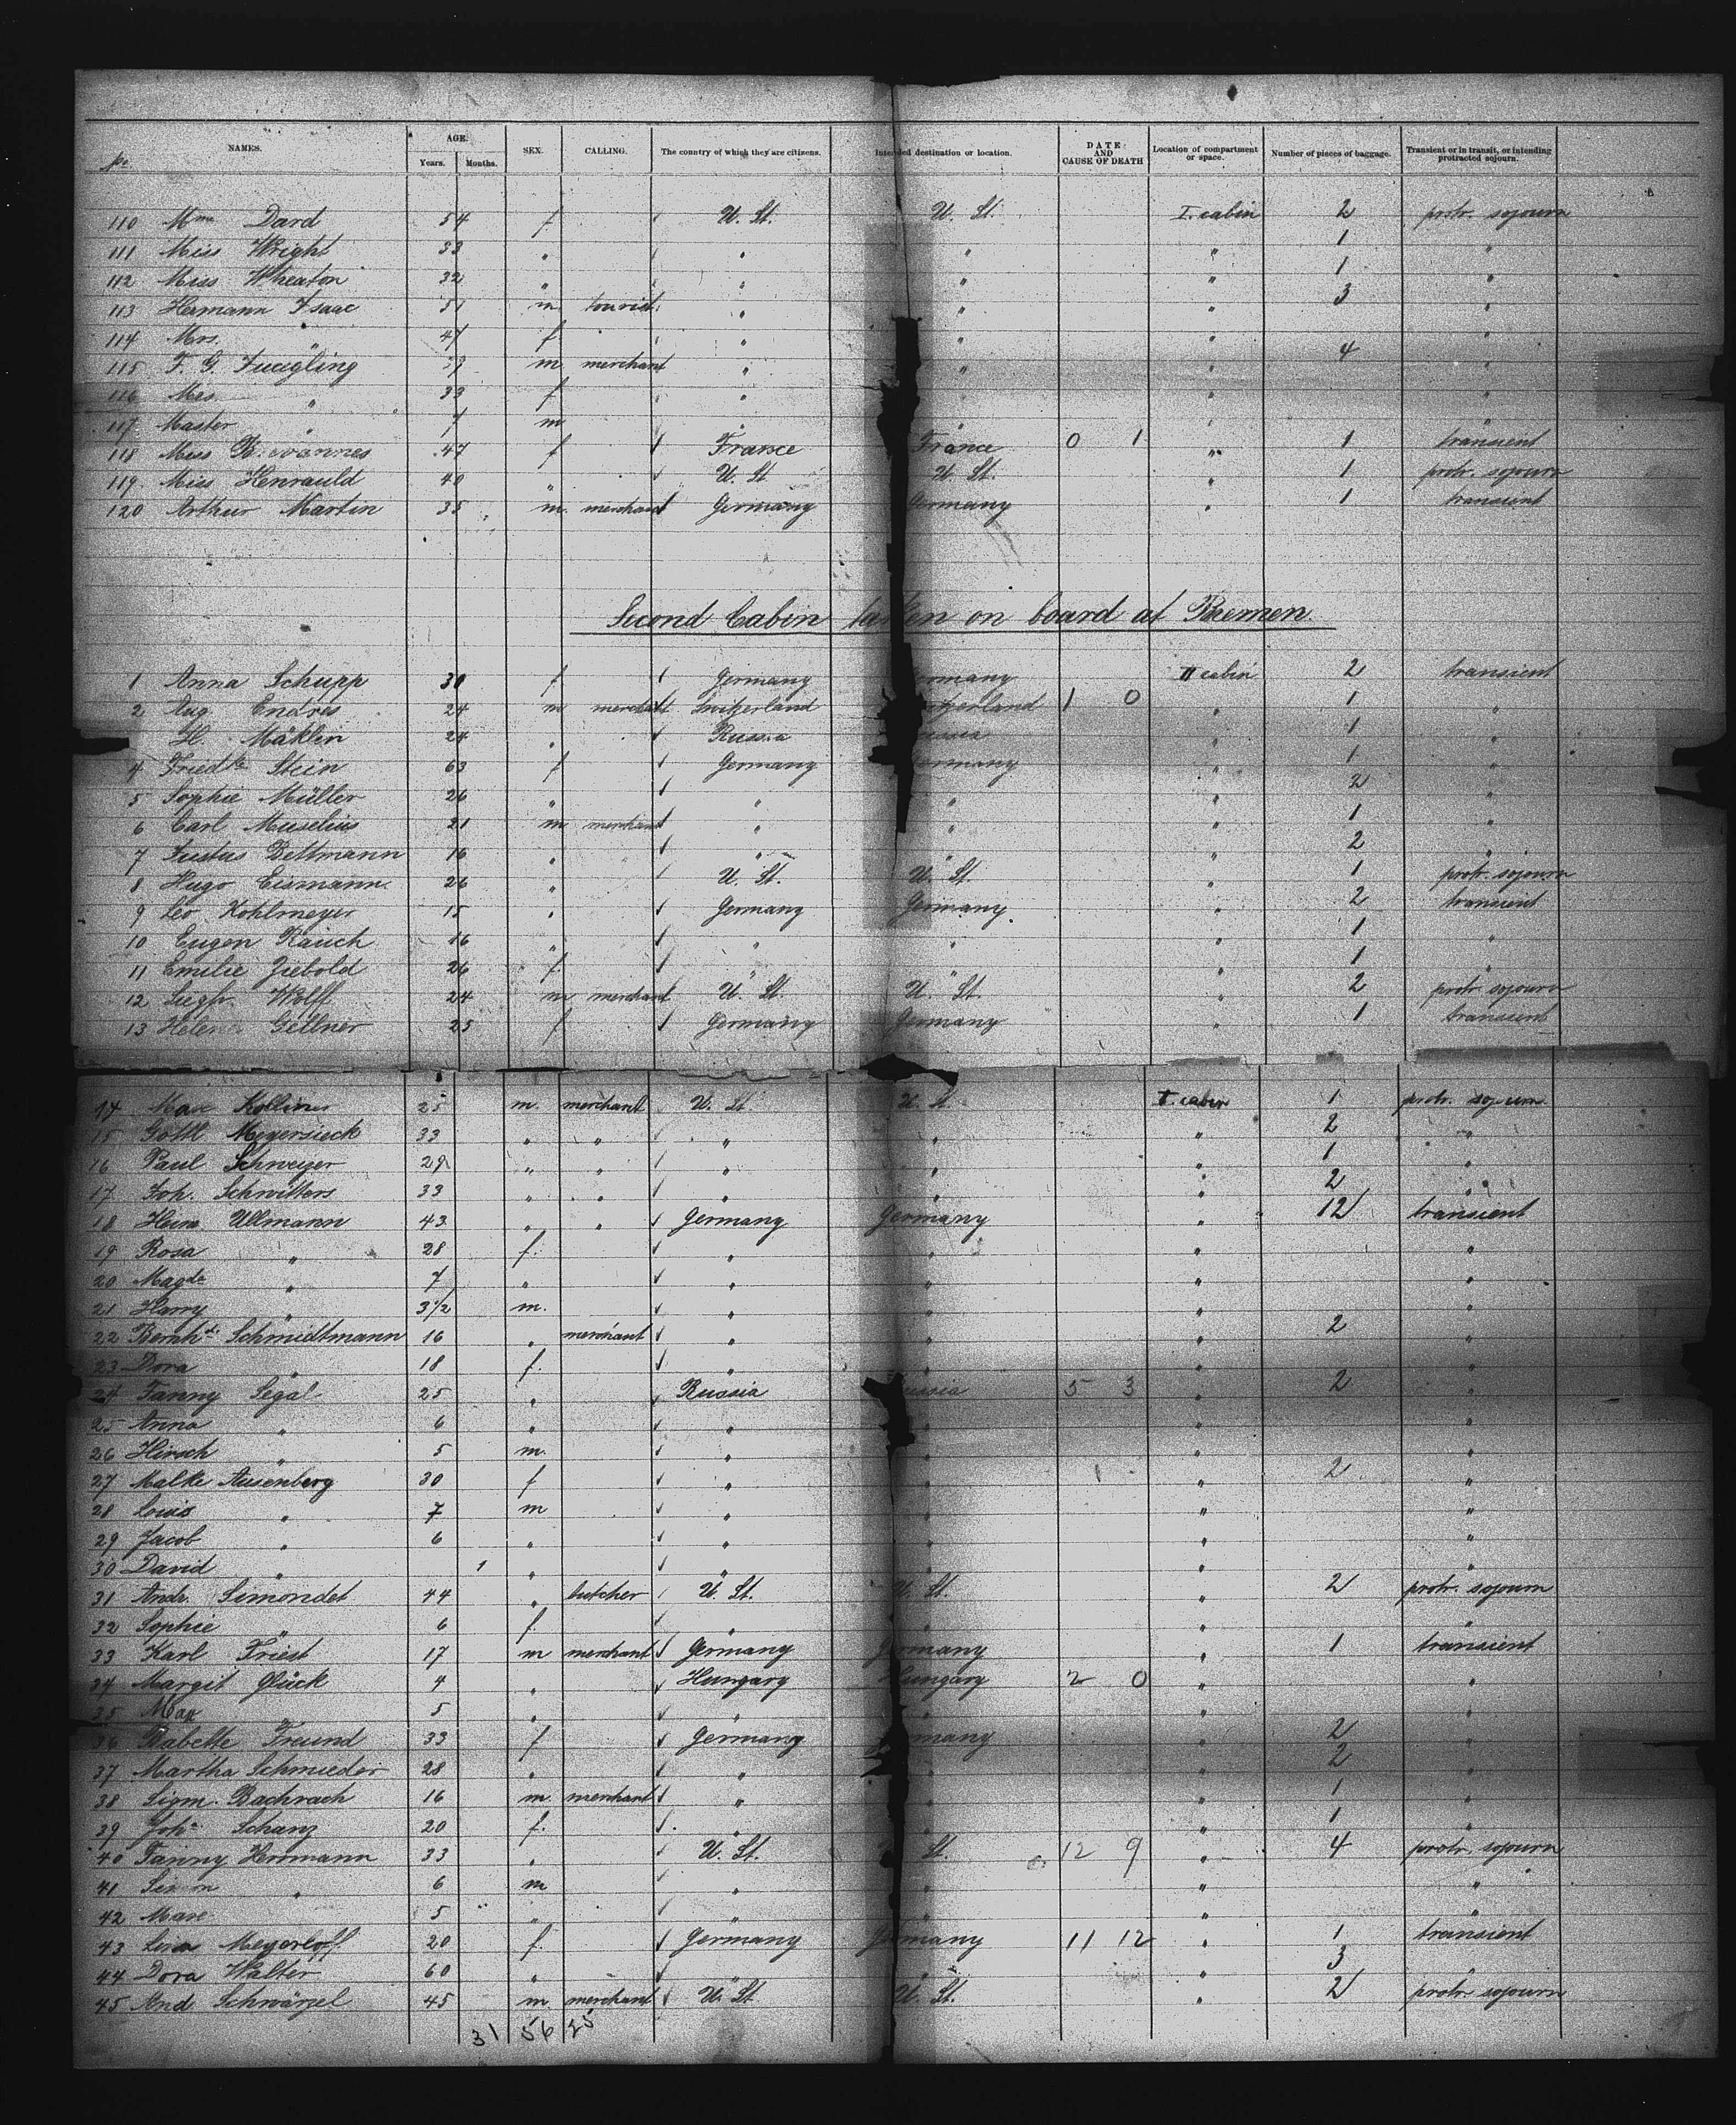 No. NAMES. AGE. Years. Months. SEX. CALLING. The country of which they are citizens. Intended destination or location. DATE AND CAUSE OF DEATH Location of compartment or space. Number of pieces of baggage. Transient or in transit, or intending protracted sojourn.
110 Mme Dard 54 f U. St. U. St. I. cabin 2 protr. sojourn
111 Miss Wright 33 " " " " 1 "
112 Miss Wheaton 32 " " " " 1 "
113 Hermann Isaac 51 m tourist " " " 3 "
114 Mrs. " 47 f " " " "
115 F. G. m merchant " " " 4 "
116 Mrs. " 33 f " " " "
117 Master " 7 m " " " "
118 Miss 47 f France France 0 1 " 1 transient
119 Miss Henrauld 40 " U. St U. St. " 1 protr. sojourn
120 Arthur Martin 35 m. merchant Germany Germany " 1 transient
Second Cabin taken on board at Bremen
1 Anna Schupp 30 f Germany Germany II cabin 2 transient
2 Aug. Endres 24 m merchant Switzerland Switzerland 1 0 " 1 "
H. Mäklin 24 " Russia Russia " 1 "
4 Friedke Stein 63 f Germany Germany " 1 "
5 Sophie Müller 26 " " " " 2 "
6 Carl Muselius 21 m merchant " " " 1 "
7 Justus Bettmann 16 " " " " 2 "
8 Hugo Eismann 26 " U. St. U. St. " 1 protr. sojourn
9 Leo Kohlmeyer 15 " Germany Germany " 2 transient
10 Eugen Rauch 16 " " " " 1 "
11 Emilie Ziebold 26 f " " " 1 "
12 Siegfr. Wolff 24 m merchant U. St. U. St. " 2 protr. sojourn
13 Helene Gellner 25 f Germany Germany " 1 transient
14 Max 25 m. merchant U. St U. St. cabin 1 protr. sojourn
15 Gottl Meyersieck 33 " " " " " 2 "
16 Paul Schweizer 29 " " " " " 1 "
17 Joh. Schwitters 33 " " " " " 2 "
18 Herm Ullmann 43 " " Germany Germany " 12 transient
19 Rosa " 28 f. " " " "
20 Magda " 7 " " " " "
21 Harry " 3 1/2 m. " " " "
22 Bernhd. Schmidtmann 16 " merchant " " " 2 "
23 Dora " 18 f. " " " "
24 Fanny Segal 25 " Russia Russia 5 3 " 2 "
25 Anna " 6 " " " " "
26 Hirsch " 5 m. " " " "
27 Malke Ausenberg 30 f " " " 2 "
28 Louis " 7 m " " " "
29 Jacob " 6 " " " " "
30 David " 1 " " " " "
31 Andr. Simondet 44 " butcher U. St. U. St. " 2 protr. sojourn
32 Sophie " 6 f. " " " "
33 Karl Friest 17 m merchant Germany Germany " 1 transient
34 Margit Glück 4 " Hungary Hungary 2 0 " "
35 Max 5 " " " " "
36 Babette Freund 33 f Germany Germany " 2 "
37 Martha Schmieder 28 " " " " 2 "
38 Sigm. Bachrach 16 m. merchant " " " 1 "
39 Joha Schanz 20 f. " " " 1 "
40 Fanny Herrmann 33 " U. St. U. St. 12 9 " 4 protr. sojourn
41 Simon " 6 m " " " "
42 Max 5 " " " " "
43 Lina Meyerhoff 20 f. Germany Germany 11 12 " 1 transient
44 Dora Walter 60 " " " " 3 "
45 And Schwärzel 45 m merchant U. St U. St. " 2 protr. sojourn
31 56 25